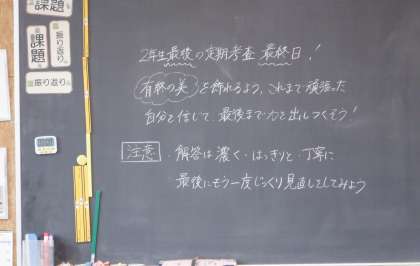 課題
課題
振り返り
振り返り
課題
2年生最後の定期考査 最終日!
有終の美を飾れるよう、これまで頑張った
自分を信じて、最後まで力を出しつくそう!
注意・解答は濃く・はっきりと・丁寧に
最後にもう一度じっくり見直しをしてみよう